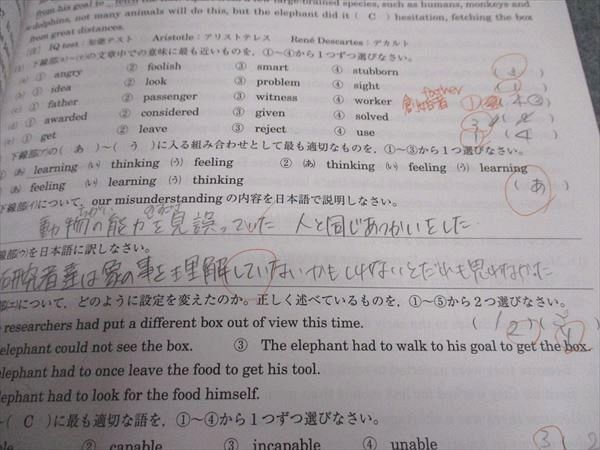 from his goal to fetch the
large-brained species, such as humans, monkeys and
dolphins, not many animals will do this, but the elephant did it ( C ) hesitation, fetching the box
from great distances.
〔注〕 IQ test：知能テスト Aristotle：アリストテレス René Descartes：デカルト
の文章中での意味に最も近いものを，①〜④から1つずつ選びなさい。
① angry ② foolish ③ smart ④ stubborn
① idea ② look ③ problem ④ sight
① father ② passenger ③ witness ④ worker
father
創始者
① awarded ② considered ③ given ④ solved
① get ② leave ③ reject ④ use
下線部㋐の( あ )〜( う )に入る組み合わせとして最も適切なものを，①〜③から1つ選びなさい。
① (あ) learning (い) thinking (う) feeling ② (あ) thinking (い) feeling (う) learning
(あ) feeling (い) learning (う) thinking
( あ )
下線部㋑について，our misunderstanding の内容を日本語で説明しなさい。
動物の能力を見誤っていた 人と同じあつかいをした
線部㋒を日本語に訳しなさい。
研究者達は象の事を理解していないかもしれないとだれも思わなかった
について，どのように設定を変えたのか。正しく述べているものを，①〜⑤から2つ選びなさい。
e researchers had put a different box out of view this time.
elephant could not see the box. ③ The elephant had to walk to his goal to get the box.
elephant had to once leave the food to get his tool.
elephant had to look for the food himself.
( C )に最も適切な語を，①〜④から1つずつ選びなさい。
ble ② capable ③ incapable ④ unable